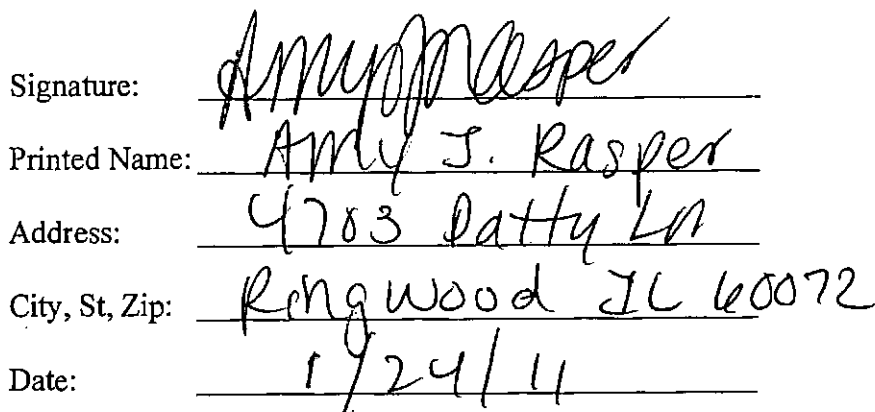 Signature: Amy J Rasper
Printed Name: Amy J. Rasper
Address: 4703 Patty Ln
City, St, Zip: Ringwood IL 60072
Date: 1/24/11